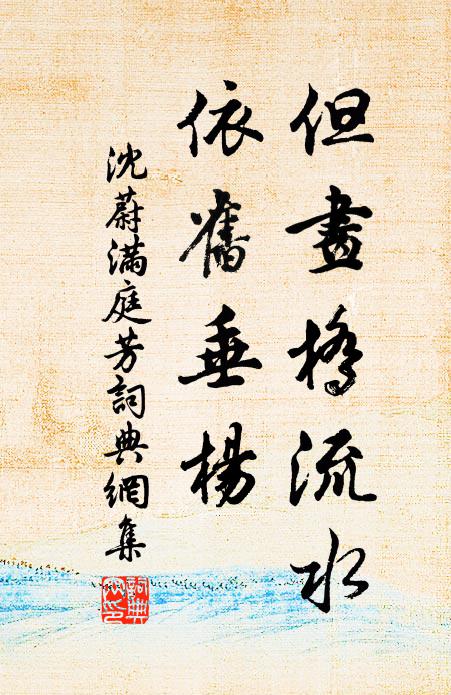 但畫橋流水
依舊垂楊
沈蔚滿庭芳詞典網集